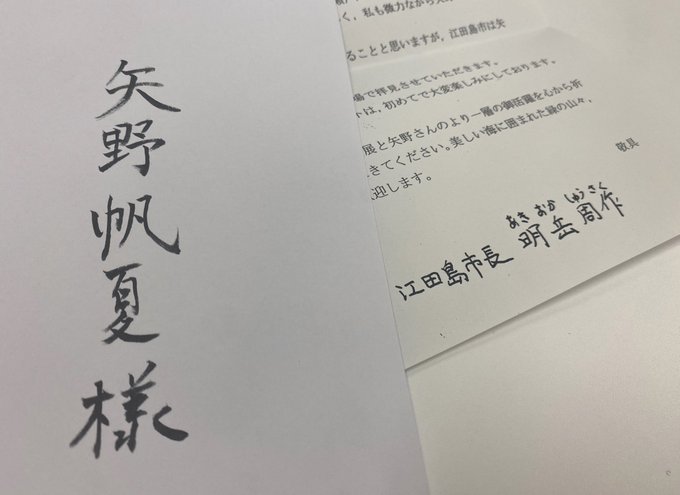 矢野帆夏様
く、私も微力ながら
ることと思いますが、江田島市は矢
場で拝見させていただきます。
は、初めてで大変楽しみにしております。
展と矢野さんのより一層の御活躍を心から祈
きてください。美しい海に囲まれた緑の山々、
迎します。
敬具
あき おか しゅう さく
江田島市長 明岳周作